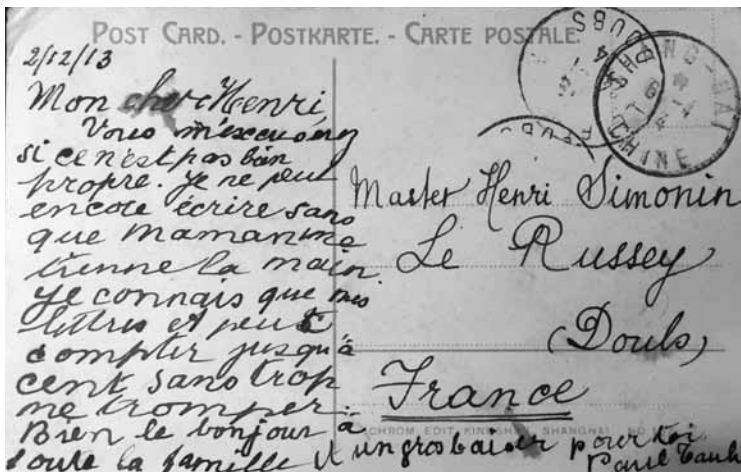 POST CARD. - POSTKARTE. - CARTE POSTALE.
2/12/13
Mon cher Henri
Vous m'excuserez
si ce n'est pas bien
propre. Je ne peux
encore écrire sans
que Maman me
tienne la main.
Je connais que mes
lettres et peux
compter jusqu'à
cent sans trop
me tromper.
Bien le bonjour à
toute la famille et un gros baiser pour toi
Paul
DOUBS
CHANG-HAI
CHINE
Master Henri Simonin
Le Russey
(Doubs)
France
EDIT. SHANGHAI